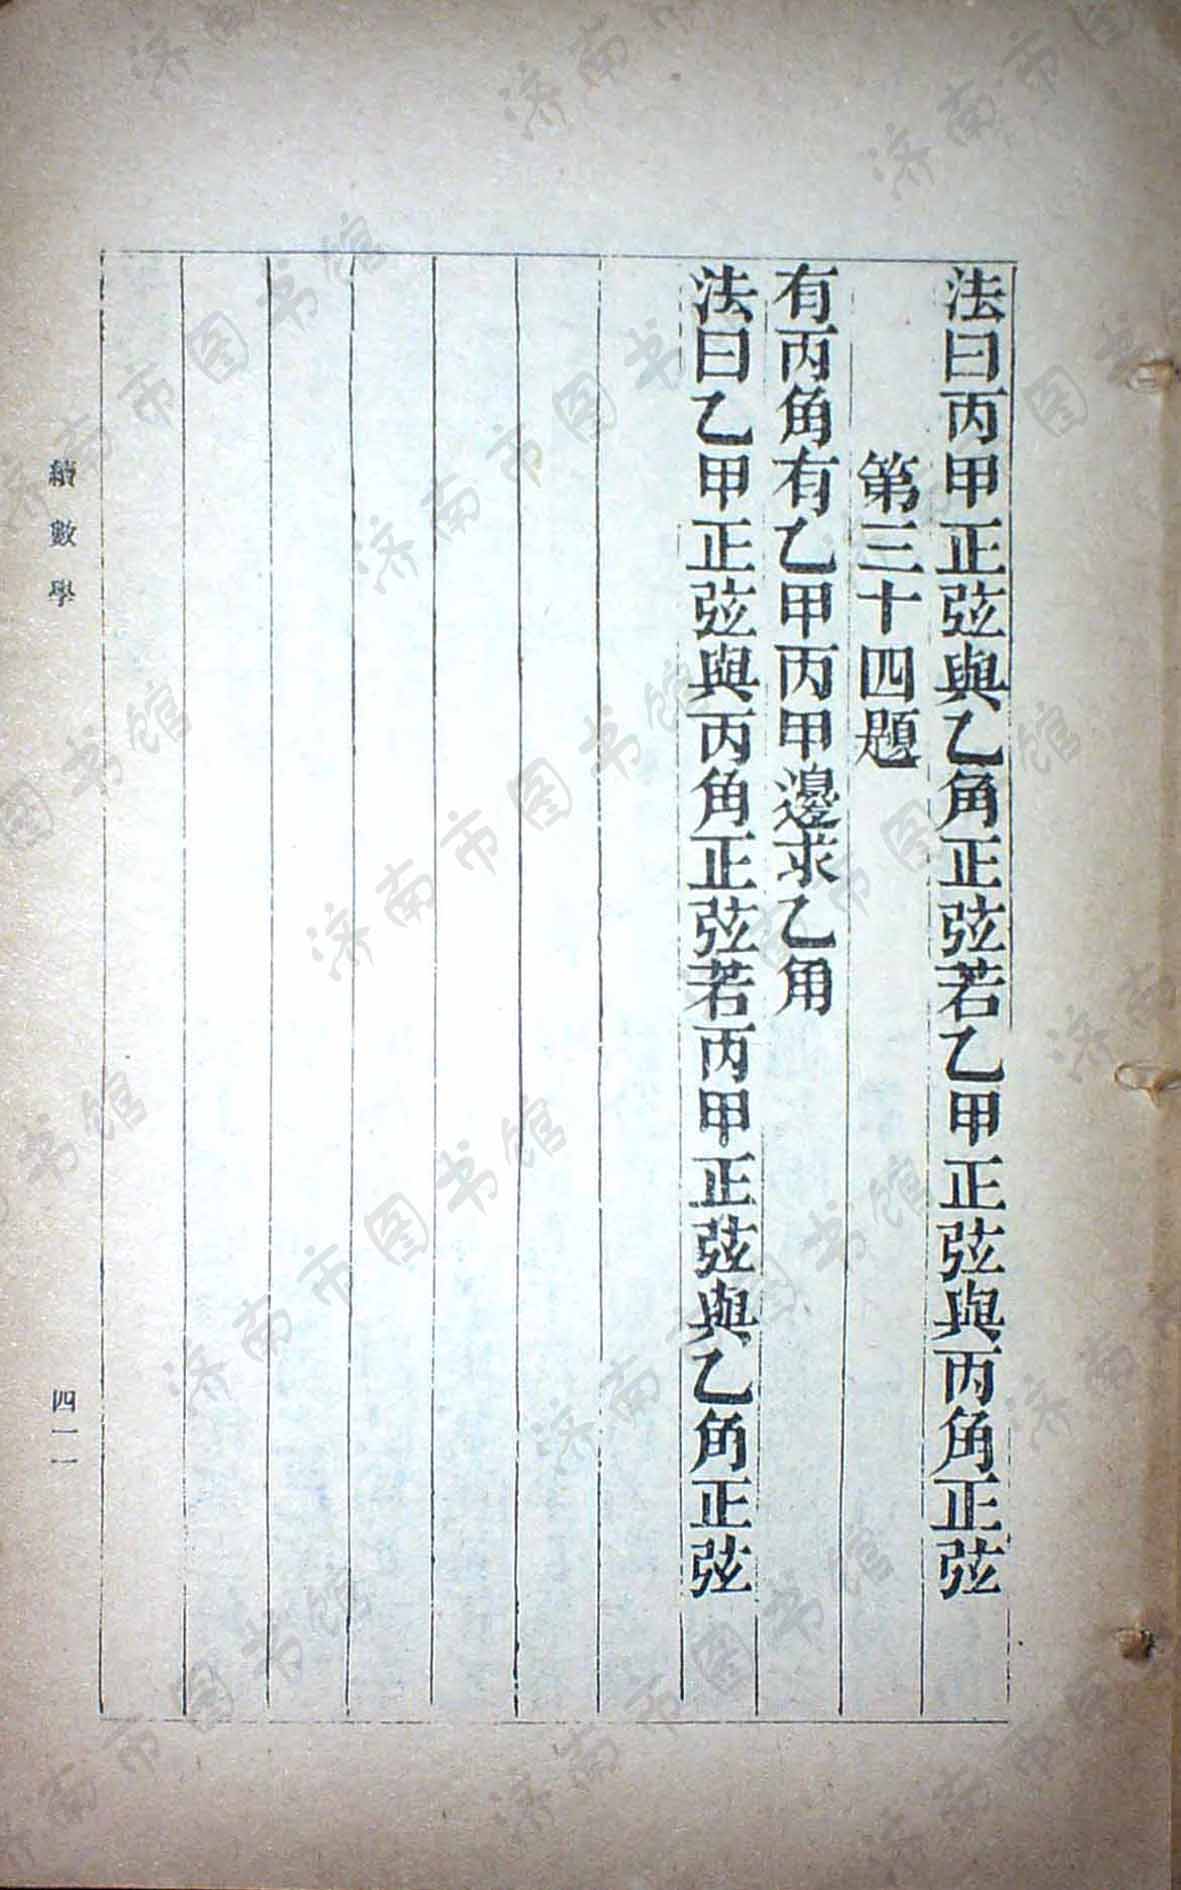 法曰丙甲正弦與乙角正弦若乙甲正弦與丙角正弦
第三十四題
有丙角有乙甲丙甲邊求乙角
法曰乙甲正弦與丙角正弦若丙甲正弦與乙角正弦
續數學
四一一
济南市图书馆